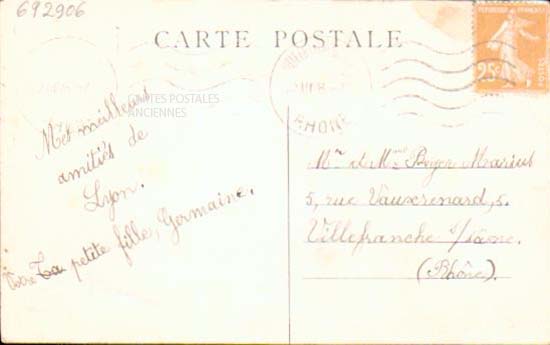 692906
CARTE POSTALE
RHONE
25c
CARTES POSTALES
ANCIENNES
Mes meilleurs
amitiés de
Lyon.
Votre petite fille, Germaine.
Mr et Mme Boyer Marius
5, rue Vauxrenard, 5.
Villefranche s/Saône.
(Rhône).